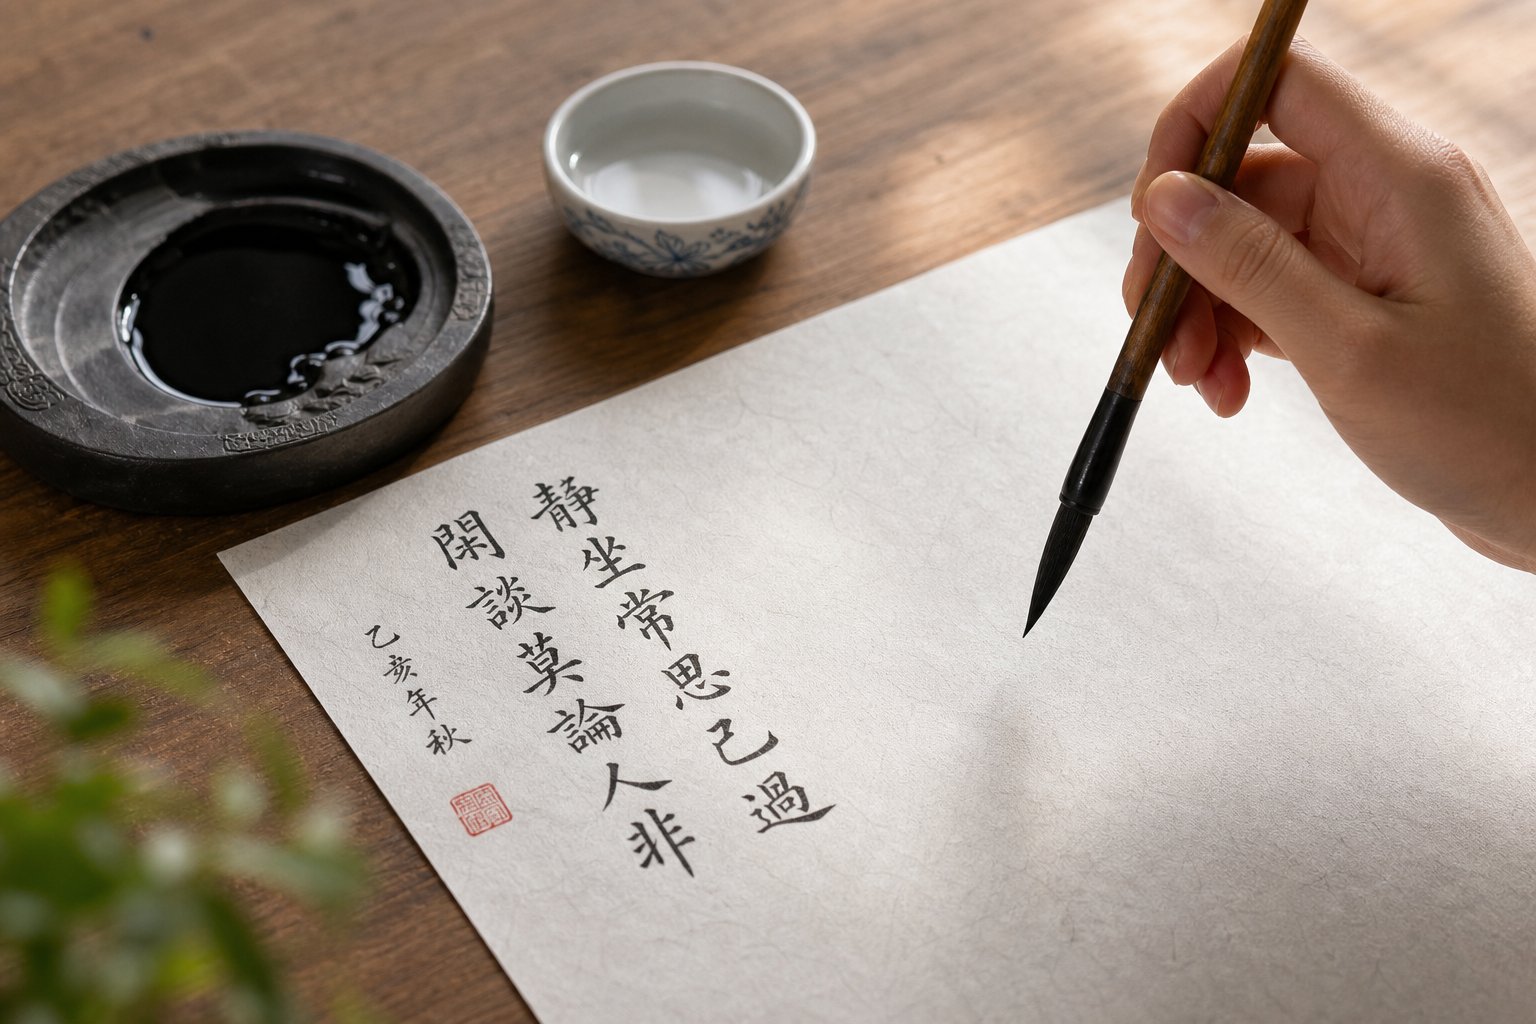 靜坐常思己過
閑談莫論人非
乙亥年秋